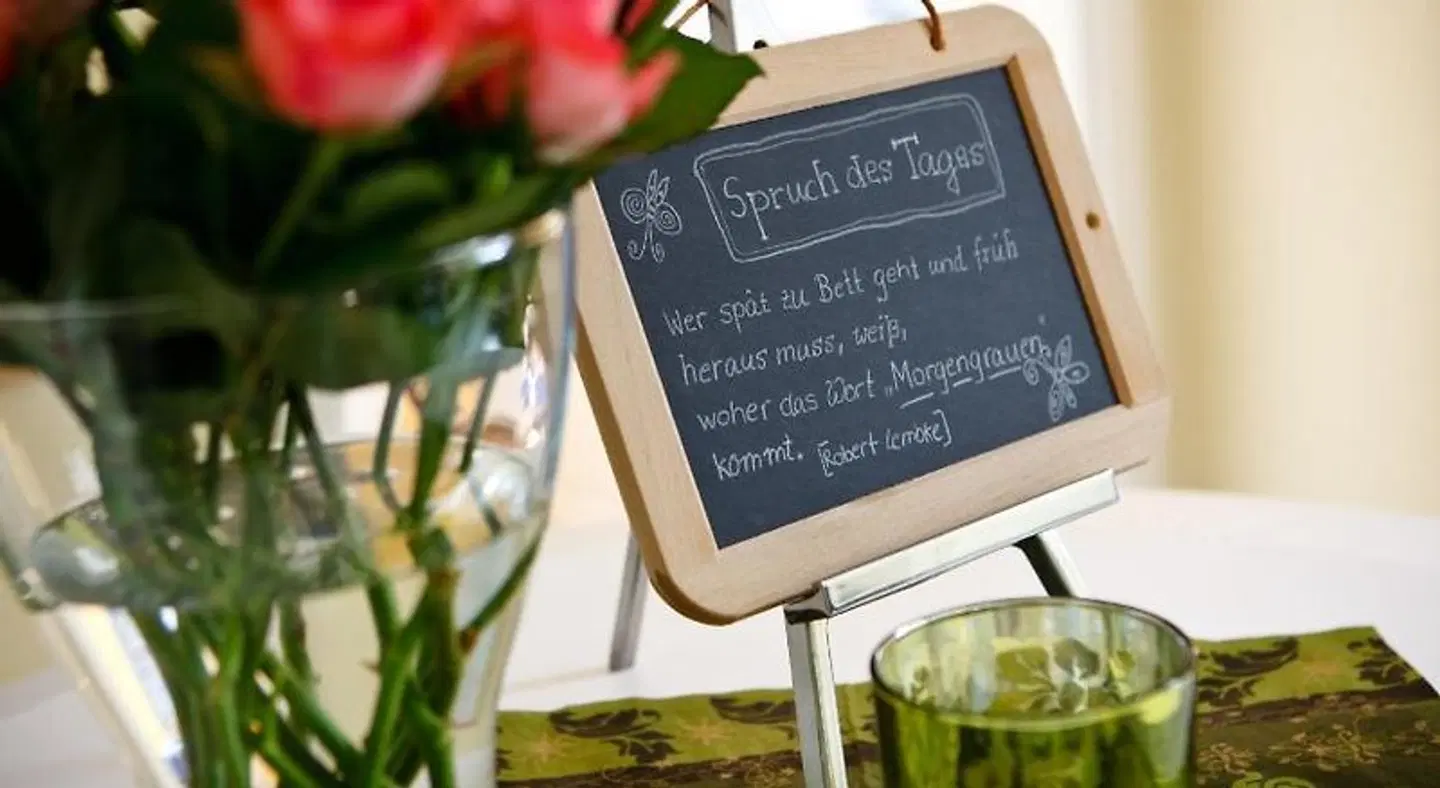 Spruch des Tages
Wer spät zu Bett geht und früh
heraus muss, weiß,
woher das Wort „Morgengrauen"
kommt. [Robert Lembke]